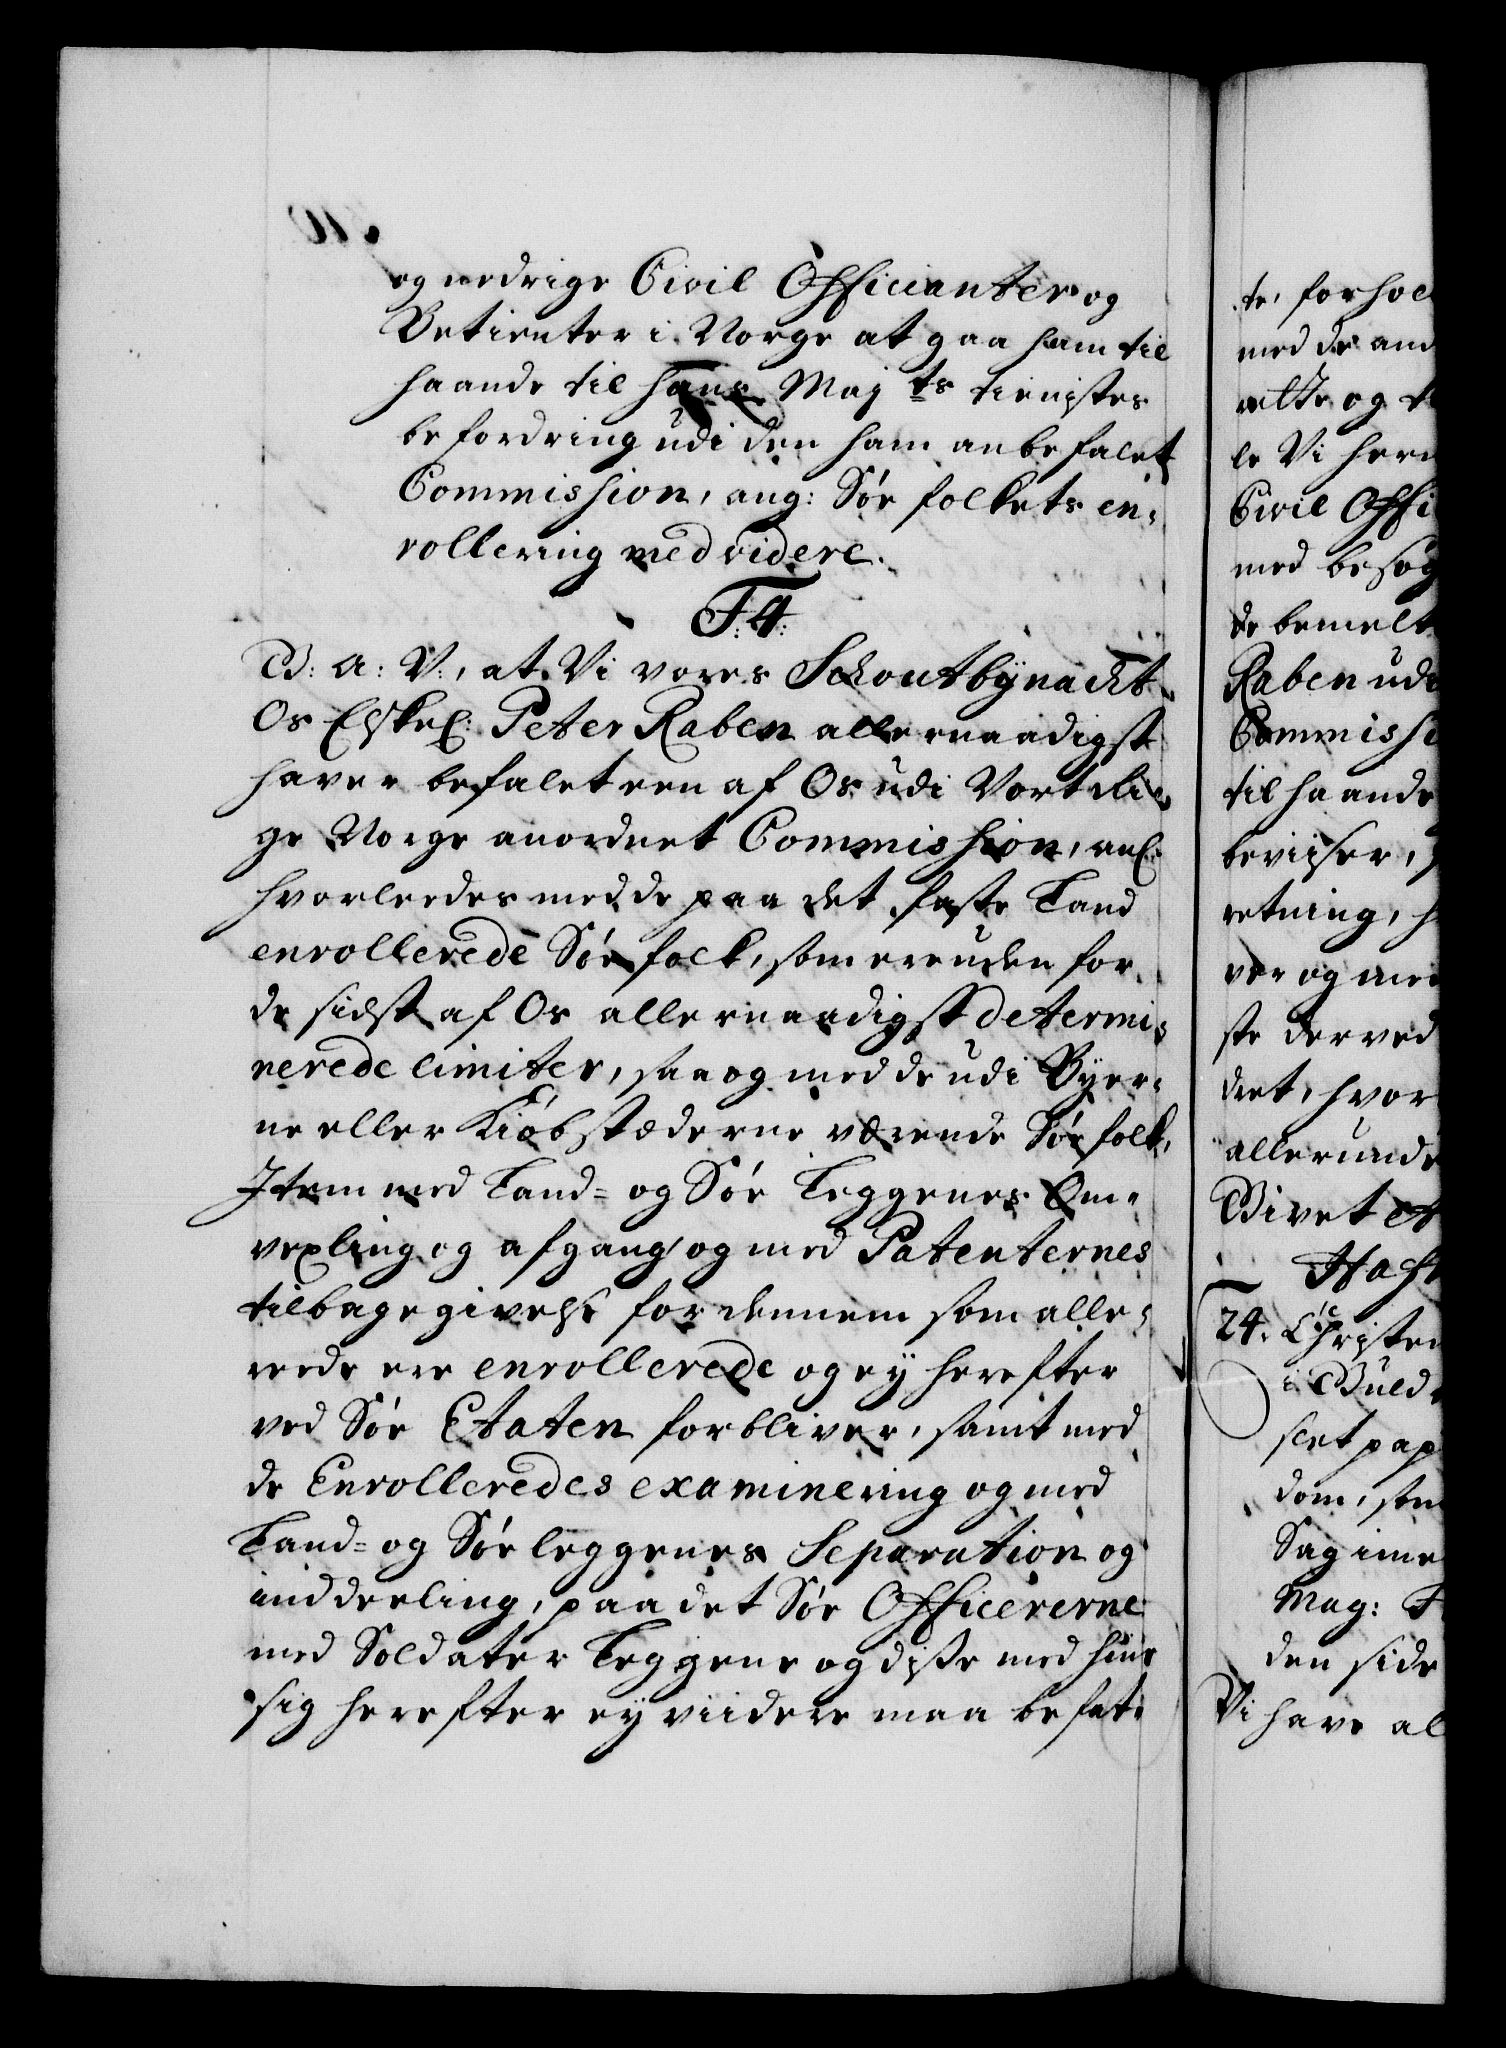 og nedrige Civil Officianter og
Betienter i Norge at gaa ham til
haande til Hans Maj ts tienistes
befordring udi den ham anbefalet
Commission, ang: Søe folkets en-
rollering med videre.
F. 4.
G: A: V:, at Vi vores Schoutbÿnacht
Os Elskel: Peter Raben allernaadigst
haver befalet een af Os udi Vort Ri-
ge Norge anordnet Commission, anl:
hvorleedes med de paa det faste Land
enrollerede Søe folk, som ere uden for
de sidst af Os allernaadigst determi-
nerede limiter, saa og med de udi Byer-
ne eller Kiøbstæderne værende Søe folk,
Item med Land- og Søe Leggenes Om-
vexling og afgang og med Patenternes
tilbagegivelse for dennem som alle-
rede ere enrollerede og ey herefter
ved Søe Etaten forbliver, samt med
de Enrolleredes examinering og med
Land- og Søe leggenes Separation og
inddeeling, paa det Søe Officererne
med Soldater Leggene og disse med hine
sig herefter ey viidere maa befat-
te, forhol
med de and
rette og
le Vi her
Civil Offi
med besøg
de bemelt
Raben udi
Commissi
til haande
beviiser,
retning,
ver og med
ste derved
det, hvor
allerunde
Givet
Hafn
24. Christen
i Guld
slet pap
dom, som
Sag ime
Mag:
den side
Vi have al